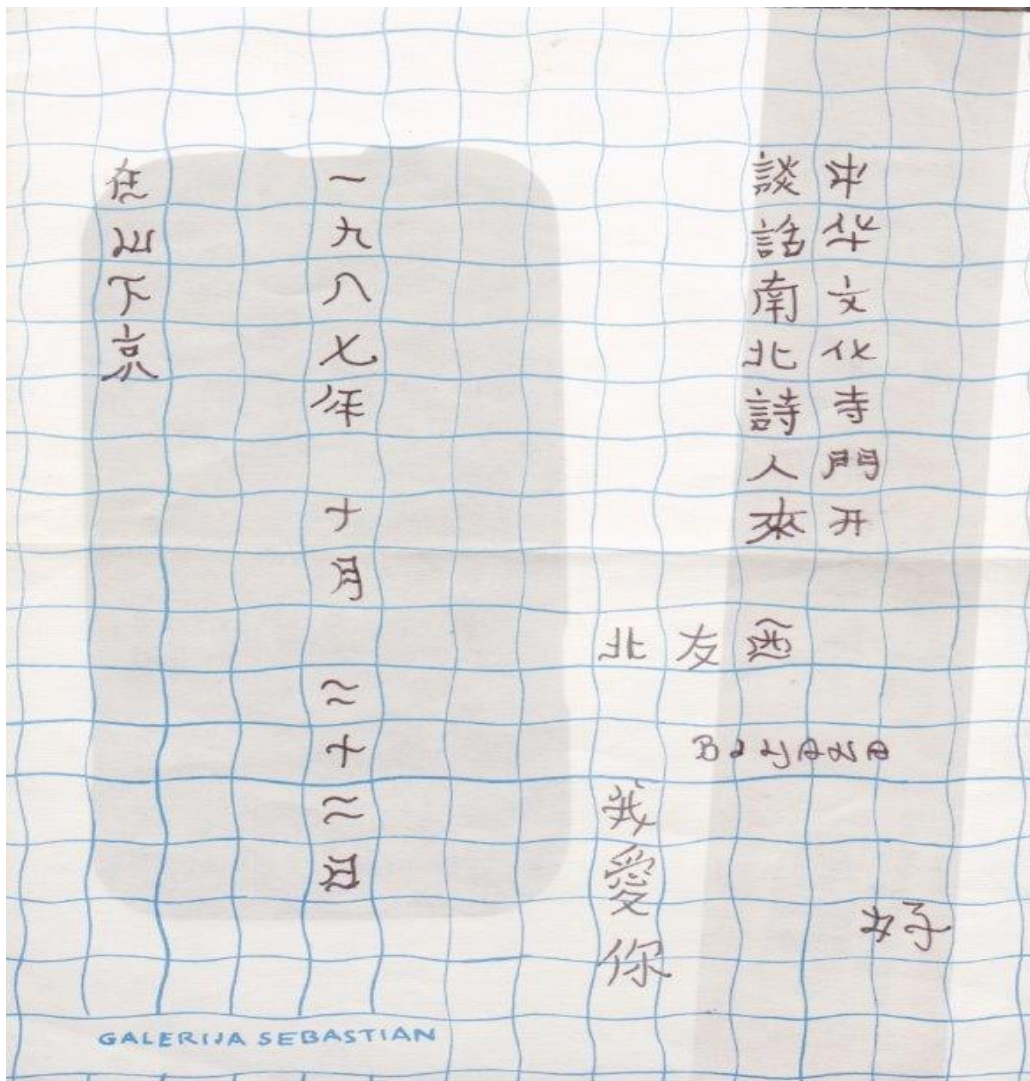 中华文化寺門开
談話南北詩人來
北友西
BILJANA
好
我愛你
一九八七年 十月 二十二日
在山下京
GALERIJA SEBASTIAN